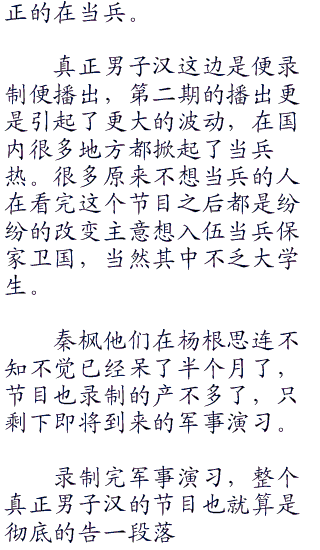 正的在当兵。
真正男子汉这边是便录
制便播出，第二期的播出更
是引起了更大的波动，在国
内很多地方都掀起了当兵
热。很多原来不想当兵的人
在看完这个节目之后都是纷
纷的改变主意想入伍当兵保
家卫国，当然其中不乏大学
生。
秦枫他们在杨根思连不
知不觉已经呆了半个月了，
节目也录制的产不多了，只
剩下即将到来的军事演习。
录制完军事演习，整个
真正男子汉的节目也就算是
彻底的告一段落